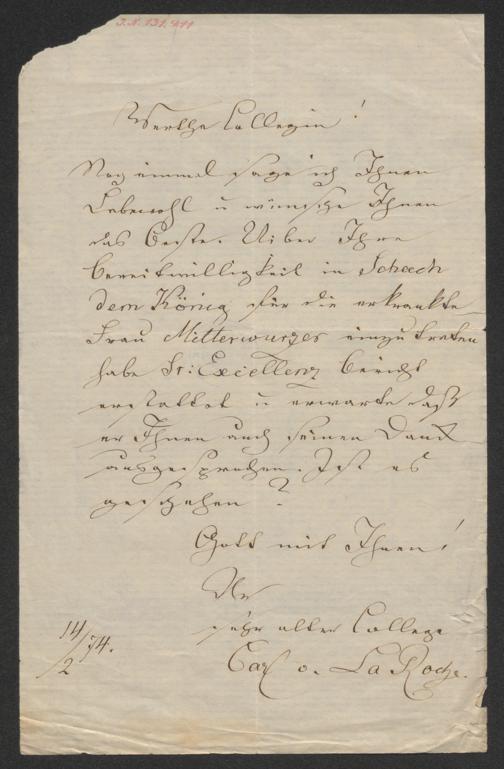 I.N. 131.911
Werthe Collegin!
Noch einmal sage ich Ihnen
Lebewohl u wünsche Ihnen
das Beste. Uiber Ihre
Bereitwilligkeit in Schach
dem König für die erkrankte
Frau Mitterwurzer einzutreten
habe Sr: Excellenz Bericht
erstattet u erwarte daß
er Ihnen auch seinen Dank
ausgesprochen. Ist es
geschehen?
Gott mit Ihnen!
Ihr
sehr alter College
Carl v. La Roche.
14/2 74.